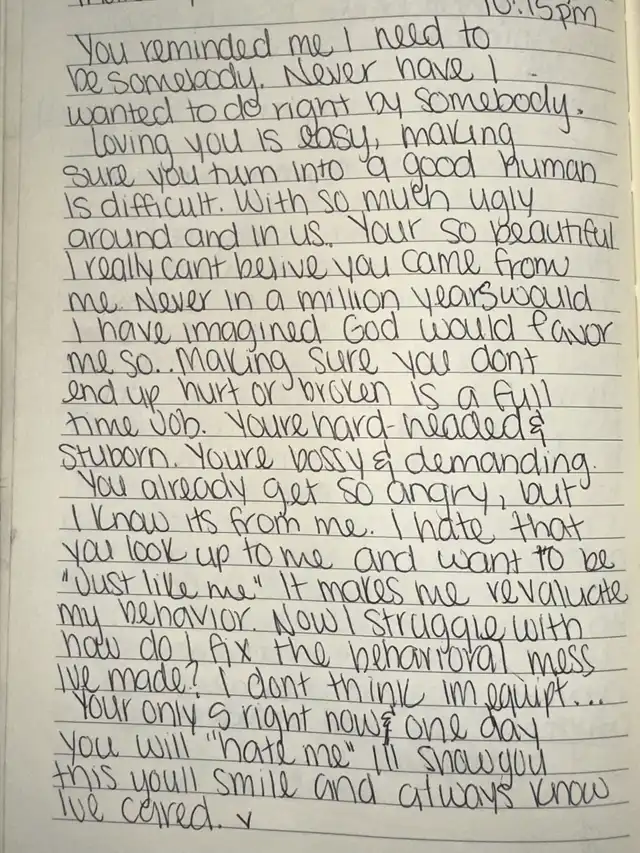 10:15pm
You reminded me I need to
be somebody. Never have I
wanted to do right by somebody.
Loving you is easy, making
sure you turn into a good human
is difficult. With so much ugly
around and in us. Your so beautiful
I really cant belive you came from
me. Never in a million years would
I have imagined God would favor
me so.. Making sure you dont
end up hurt or broken is a full
time job. Youre hard-headed &
stuborn. Youre bossy & demanding.
You already get so angry, but
I know its from me. I hate that
you look up to me and want to be
"Just like me" It makes me revaluate
my behavior. Now I struggle with
how do I fix the behavioral mess
Ive made? I dont think im equipt...
Your only 5 right now & one day
you will "hate me" Ill show you
this youll smile and always know
Ive cared.